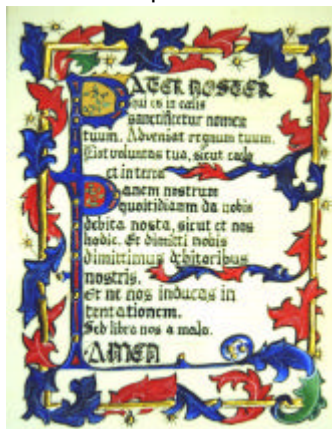 PATER NOSTER
qui es in celis
sanctificetur nomen
tuum. Adveniat regnum tuum.
Fiat voluntas tua, sicut celo
et in terra
Panem nostrum
quoitidianm da nobis
debita nosta, sicut et nos
hodie. Et dimitti nobis
dimittimus debitoribus
nostris.
Et ne nos inducas in
tentationem.
Sed libra nos a malo.
AMEN